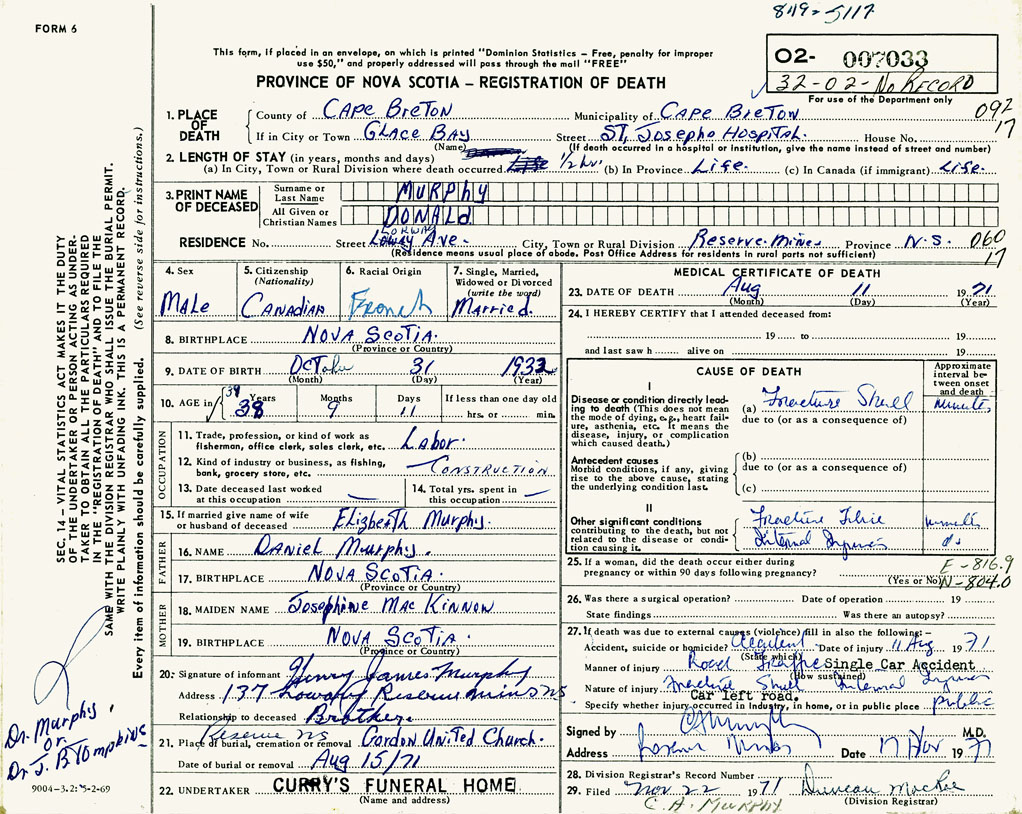 8119-5117
FORM 6
This form, if placed in an envelope, on which is printed "Dominion Statistics – Free, penalty for improper
use $50," and properly addressed will pass through the mail "FREE"
PROVINCE OF NOVA SCOTIA – REGISTRATION OF DEATH
O2- 007033
32-02-No RECORD
For use of the Department only
092
17
1. PLACE OF DEATH
County of CAPE BRETON Municipality of CAPE BRETON
If in City or Town GLACE BAY Street ST, Josephs Hospital. House No.
(Name) (If death occurred in a hospital or institution, give the name instead of street and number)
2. LENGTH OF STAY (in years, months and days)
(a) In City, Town or Rural Division where death occurred 1/2 hr. (b) In Province Life. (c) In Canada (if immigrant) Life.
3. PRINT NAME OF DECEASED
Surname or Last Name MURPHY
All Given or Christian Names DONALD
RESIDENCE No. Street Ave. City, Town or Rural Division Reserve Mines Province N.S. 060
17
(Residence means usual place of abode. Post Office Address for residents in rural parts not sufficient)
4. Sex
MALE
5. Citizenship
(Nationality)
CANADIAN
6. Racial Origin
French
7. Single, Married,
Widowed or Divorced
(write the word)
Married.
8. BIRTHPLACE NOVA SCOTIA.
(Province or Country)
9. DATE OF BIRTH October 31 1932
(Month) (Day) (Year)
10. AGE in Years 39 38 Months 9 Days 11 If less than one day old
hrs. or min.
OCCUPATION
11. Trade, profession, or kind of work as
fisherman, office clerk, sales clerk, etc. Labor.
12. Kind of industry or business, as fishing,
bank, grocery store, etc. – CONSTRUCTION
13. Date deceased last worked
at this occupation —
14. Total yrs. spent in
this occupation —
15. If married give name of wife
or husband of deceased Elizbeath Murphy.
FATHER
16. NAME DANIEL Murphy.
17. BIRTHPLACE NOVA SCOTIA.
(Province or Country)
MOTHER
18. MAIDEN NAME Josephine MacKinnon
19. BIRTHPLACE NOVA SCOTIA.
(Province or Country)
20. Signature of informant Henry James Murphy
Address 137 Reserve mines NS
Relationship to deceased Brother.
Reserve NS
21. Place of burial, cremation or removal Gordon United Church.
Date of burial or removal Aug 15/71
22. UNDERTAKER CURRY'S FUNERAL HOME
(Name and address)
MEDICAL CERTIFICATE OF DEATH
23. DATE OF DEATH Aug 11 1971
(Month) (Day) (Year)
24. I HEREBY CERTIFY that I attended deceased from:
19 to 19
and last saw h alive on 19
CAUSE OF DEATH
Approximate
interval be-
tween onset
and death
I
Disease or condition directly lead-
ing to death (This does not mean
the mode of dying, e.g., heart fail-
ure, asthenia, etc. It means the
disease, injury, or complication
which caused death.)
(a) Fracture Skull minutes
due to (or as a consequence of)
Antecedent causes
Morbid conditions, if any, giving
rise to the above cause, stating
the underlying condition last.
(b)
due to (or as a consequence of)
(c)
II
Other significant conditions
contributing to the death, but not
related to the disease or condi-
tion causing it.
Fracture minutes
Internal Injuries
25. If a woman, did the death occur either during
pregnancy or within 90 days following pregnancy?
(Yes or No)
E-816.9
N-804.0
26. Was there a surgical operation? Date of operation 19
State findings Was there an autopsy?
27. If death was due to external causes (violence) fill in also the following:
Accident, suicide or homicide? Accident Date of injury 11 Aug 1971
(State which)
Manner of injury Road Traffic Single Car Accident
(How sustained)
Nature of injury Fracture Skull Internal Injuries
Car left road.
Specify whether injury occurred in industry, in home, or in public place public
Signed by M.D.
Address Reserve Mines Date 17 Nov 1971
28. Division Registrar's Record Number
29. Filed Nov. 22 1971 Duncan MacRae
(Division Registrar)
C. A. MURPHY
SEC. 14 – VITAL STATISTICS ACT MAKES IT THE DUTY
OF THE UNDERTAKER OR PERSON ACTING AS UNDER-
TAKER TO OBTAIN ALL THE PARTICULARS REQUIRED
IN THE "REGISTRATION OF DEATH" AND TO FILE THE
SAME WITH THE DIVISION REGISTRAR WHO SHALL ISSUE THE BURIAL PERMIT.
WRITE PLAINLY WITH UNFADING INK. THIS IS A PERMANENT RECORD.
Every item of information should be carefully supplied. (See reverse side for instructions.)
Dr. Murphy
or
Dr J. B Tompkins
9004-3.2: 5-2-69